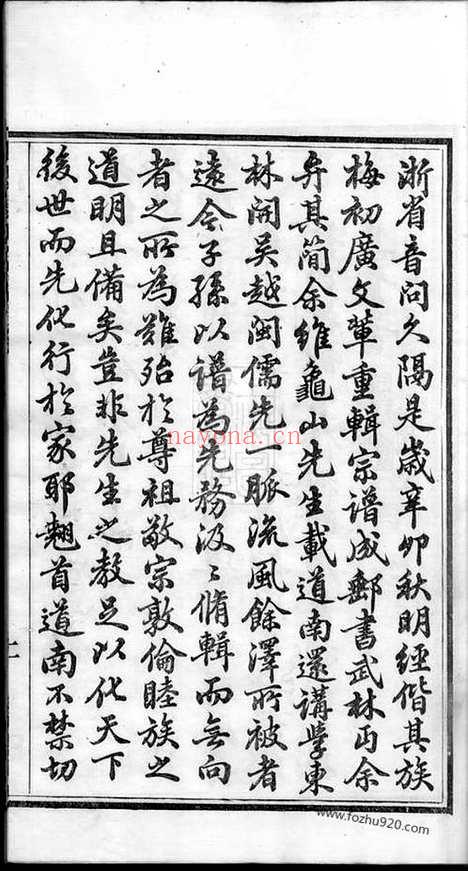 浙省音问久隔是歲辛卯秋明經偕其族
梅初廣文輩重輯宗谱成郵書武林丐余
弁其简余維龜山先生載道南還講學東
林開吴越闽儒先一脈流風餘澤所被者
遠令子孫以谱為先務汲〻脩輯而無向
者之所為難殆於尊祖敬宗敦倫睦族之
道明且備矣豈非先生之教足以化天下
後世而先化行於家耶翹首道南不禁切
二
nayona.cn
www.fozhu920.com